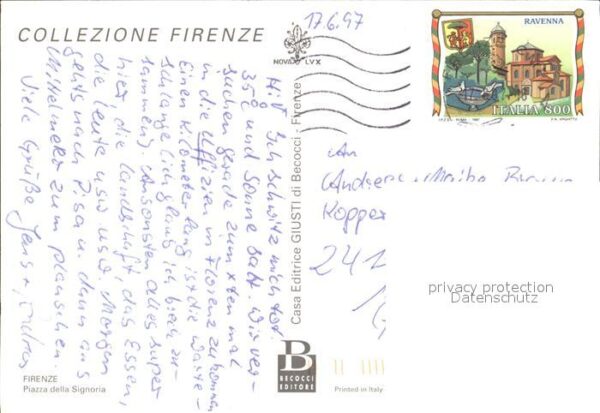 COLLEZIONE FIRENZE
17.6.97
NOVA LUX
RAVENNA
ITALIA 800
Hi! Ich schwitz mich tot.
35° und Sonne satt. Wir ver-
suchen gerade zum xten mal
in die Uffizien in Florenz zu kommen
Einen Kilometer lang ist die Warte-
schlange (ich glaub ich brech zu-
sammen) Ansonsten alles super
hier die Landschaft, das Essen,
die Leute usw usw. Morgen
gehts nach Pisa u. dann ans
Mittelmeer zum planschen.
Viele Grüße Jens +
Casa Editrice GIUSTI di Becocci - Firenze
An
Andrea
Kopper
241
privacy protection
Datenschutz
B
BECOCCI
EDITORE
Printed in Italy
FIRENZE
Piazza della Signoria